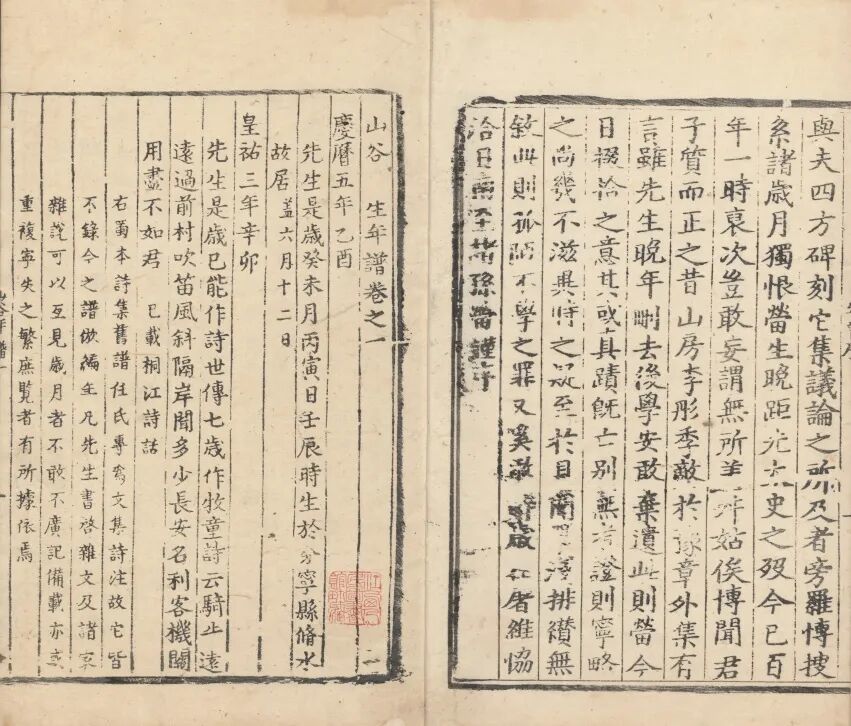 與夫四方碑刻它集議論之所及者旁羅愽搜
系諸歲月獨恨㽦生晚距先太史之歿今已百
年一時裒次豈敢妄謂無所差舛姑俟博聞君
子質而正之昔山房李彤季敵於豫章外集有
言雖先生晚年刪去後學安敢棄遺此則㽦今
日掇拾之意其或真蹟旣亡別無考證則寧略
之尚幾不滋異時之疑至於目淺排纘無
敘此則孤陋不學之罪又奚敢辭歲在屠維協
洽日南至諸孫㽦謹序
山谷 生年譜卷之一
慶曆五年乙酉
先生是歲癸未月丙寅日壬辰時生於分寧縣脩水
故居蓋六月十二日
皇祐三年辛卯
先生是歲已能作詩世傳七歲作牧童詩云騎牛遠
遠過前村吹笛風斜隔岸聞多少長安名利客機關
用盡不如君 已載桐江詩話
右蜀本詩集舊譜任氏專爲文集詩注故它皆
不錄今之譜倣編年凡先生書啓雜文及諸家
雜說可以互見歲月者不敢不廣記備載亦或
重複寧失之繁庶覽者有所據依焉